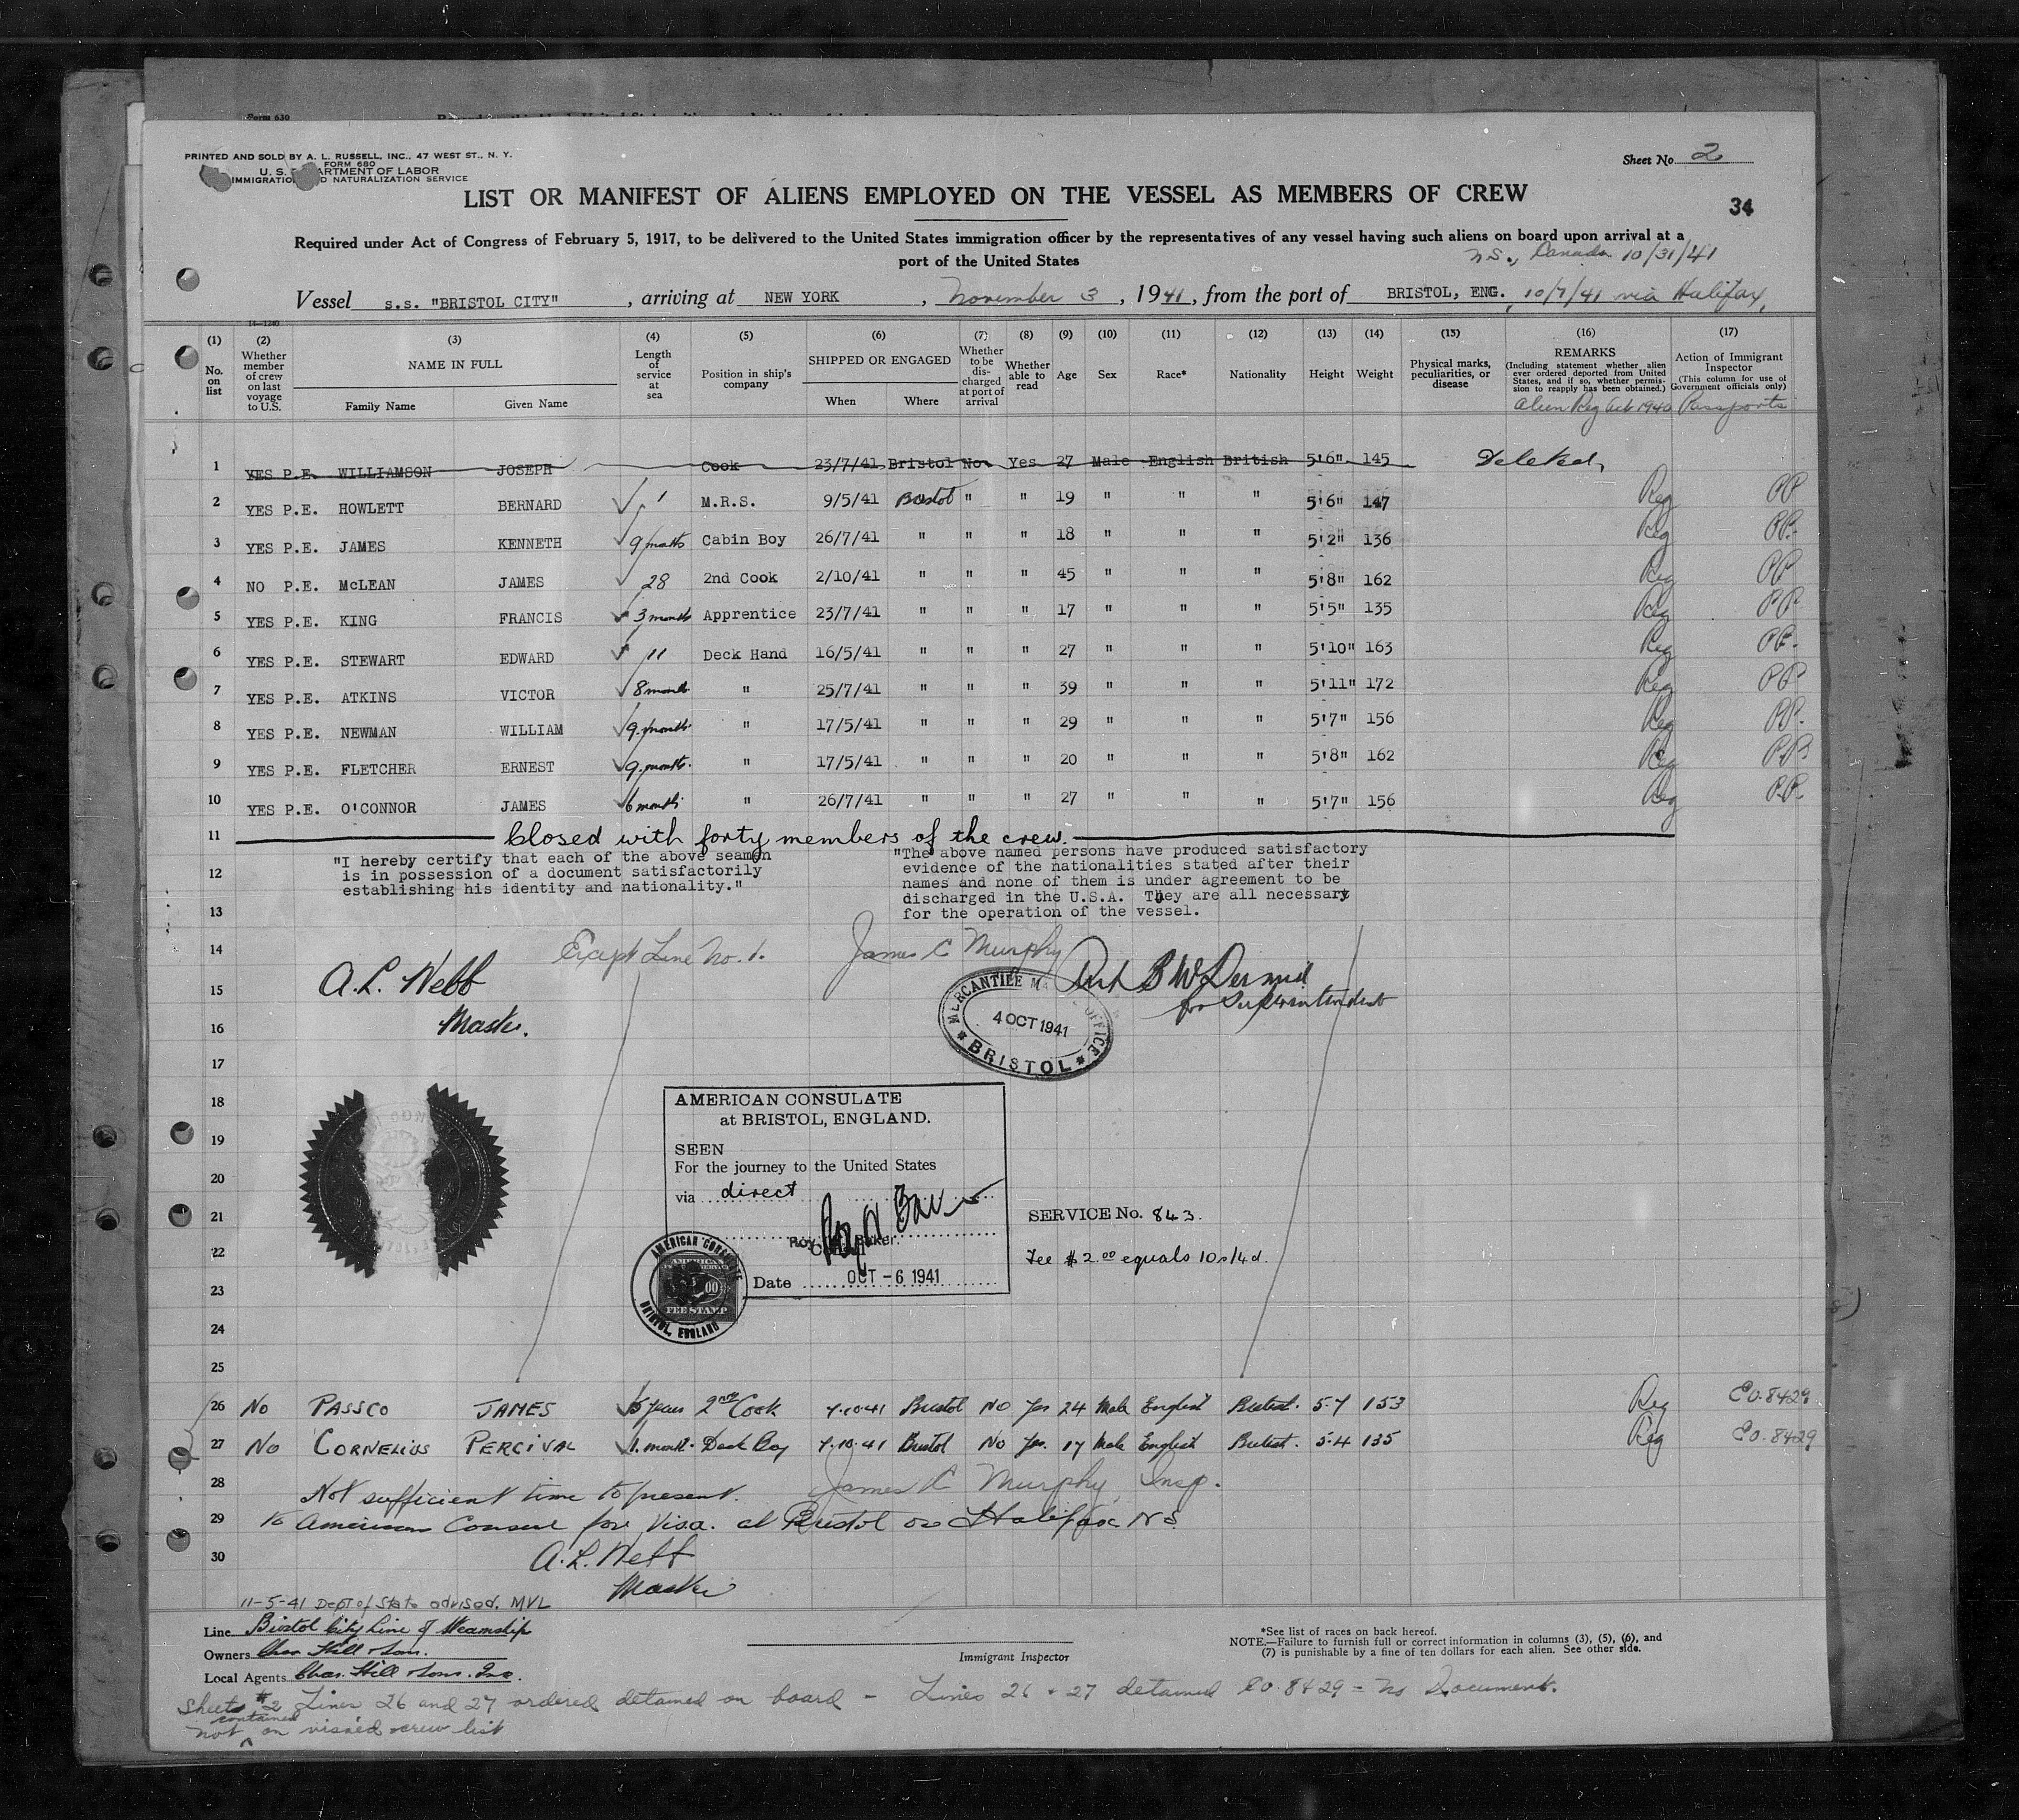 Form 630
PRINTED AND SOLD BY A. L. RUSSELL, INC., 47 WEST ST., N. Y.
FORM 680
U. S. DEPARTMENT OF LABOR
IMMIGRATION AND NATURALIZATION SERVICE
Sheet No. 2
LIST OR MANIFEST OF ALIENS EMPLOYED ON THE VESSEL AS MEMBERS OF CREW
34
Required under Act of Congress of February 5, 1917, to be delivered to the United States immigration officer by the representatives of any vessel having such aliens on board upon arrival at a
port of the United States
N.S., Canada 10/31/41
Vessel s.s. "BRISTOL CITY", arriving at NEW YORK, November 3, 1941, from the port of BRISTOL, ENG. 10/7/41 via Halifax,
14-1240
(1) (2) (3) (4) (5) (6) (7) (8) (9) (10) (11) (12) (13) (14) (15) (16) (17)
No. on list
Whether member of crew on last voyage to U.S.
NAME IN FULL
Family Name Given Name
Length of service at sea
Position in ship's company
SHIPPED OR ENGAGED
When Where
Whether to be discharged at port of arrival
Whether able to read
Age
Sex
Race*
Nationality
Height
Weight
Physical marks, peculiarities, or disease
REMARKS
(Including statement whether alien ever ordered deported from United States, and if so, whether permission to reapply has been obtained.)
Action of Immigrant Inspector
(This column for use of Government officials only)
Alien Reg Act 1940 Passports
1 YES P.E. WILLIAMSON JOSEPH Cook 23/7/41 Bristol No Yes 27 Male English British 5'6" 145 Deleted,
2 YES P.E. HOWLETT BERNARD 1 M.R.S. 9/5/41 Bristol " " 19 " " " 5'6" 147 Reg PP
3 YES P.E. JAMES KENNETH 9 months Cabin Boy 26/7/41 " " " 18 " " " 5'2" 136 Reg PP.
4 NO P.E. McLEAN JAMES 28 2nd Cook 2/10/41 " " " 45 " " " 5'8" 162 Reg PP
5 YES P.E. KING FRANCIS 3 months Apprentice 23/7/41 " " " 17 " " " 5'5" 135 Reg PP
6 YES P.E. STEWART EDWARD 11 Deck Hand 16/5/41 " " " 27 " " " 5'10" 163 Reg PP.
7 YES P.E. ATKINS VICTOR 8 months " 25/7/41 " " " 39 " " " 5'11" 172 Reg PP
8 YES P.E. NEWMAN WILLIAM 9. months " 17/5/41 " " " 29 " " " 5'7" 156 Reg PP.
9 YES P.E. FLETCHER ERNEST 9. months. " 17/5/41 " " " 20 " " " 5'8" 162 Reg PP
10 YES P.E. O'CONNOR JAMES 6 months " 26/7/41 " " " 27 " " " 5'7" 156 Reg PP
11 Closed with forty members of the crew.
"I hereby certify that each of the above seamen
12 is in possession of a document satisfactorily
establishing his identity and nationality."
"The above named persons have produced satisfactory
evidence of the nationalities stated after their
names and none of them is under agreement to be
discharged in the U.S.A. They are all necessary
13 for the operation of the vessel.
14 Except Line No. 1. James C Murphy
15 A.L. Webb
for Superintendent
16 Master.
MERCANTILE MARINE OFFICE
4 OCT 1941
* BRISTOL *
17
18 AMERICAN CONSULATE
at BRISTOL, ENGLAND.
19 SEEN
For the journey to the United States
20 via direct
21 SERVICE No. 843.
Roy Baker
22 Consul
Fee $2.00 equals 10s/4d.
Date OCT - 6 1941
23
AMERICAN CONSULATE
AMERICAN
00
FEE STAMP
BRISTOL, ENGLAND
24
25
26 No PASSCO JAMES 5 years 2nd Cook 7.10.41 Bristol No Yes 24 Male English British. 5-7 153 Reg CO.8429
27 No CORNELIUS PERCIVAL 1. month. Deck Boy 7.10.41 Bristol No Yes. 17 Male English British. 5-4 135 Reg CO.8429
28 Not sufficient time to present. James C Murphy, Insp.
29 to American Consul for Visa. at Bristol or Halifax N S.
30 A.L. Webb
Master
11-5-41 Dept of State advised. MVL
Line Bristol City Line of Steamship
Owners Chas. Hill & Sons.
Local Agents Chas. Hill & Sons. Inc.
Immigrant Inspector
*See list of races on back hereof.
NOTE.—Failure to furnish full or correct information in columns (3), (5), (6), and
(7) is punishable by a fine of ten dollars for each alien. See other side.
Sheets #2 Lines 26 and 27 ordered detained on board - Lines 26 & 27 detained CO.8429 = No Document.
not contained on visaed crew list